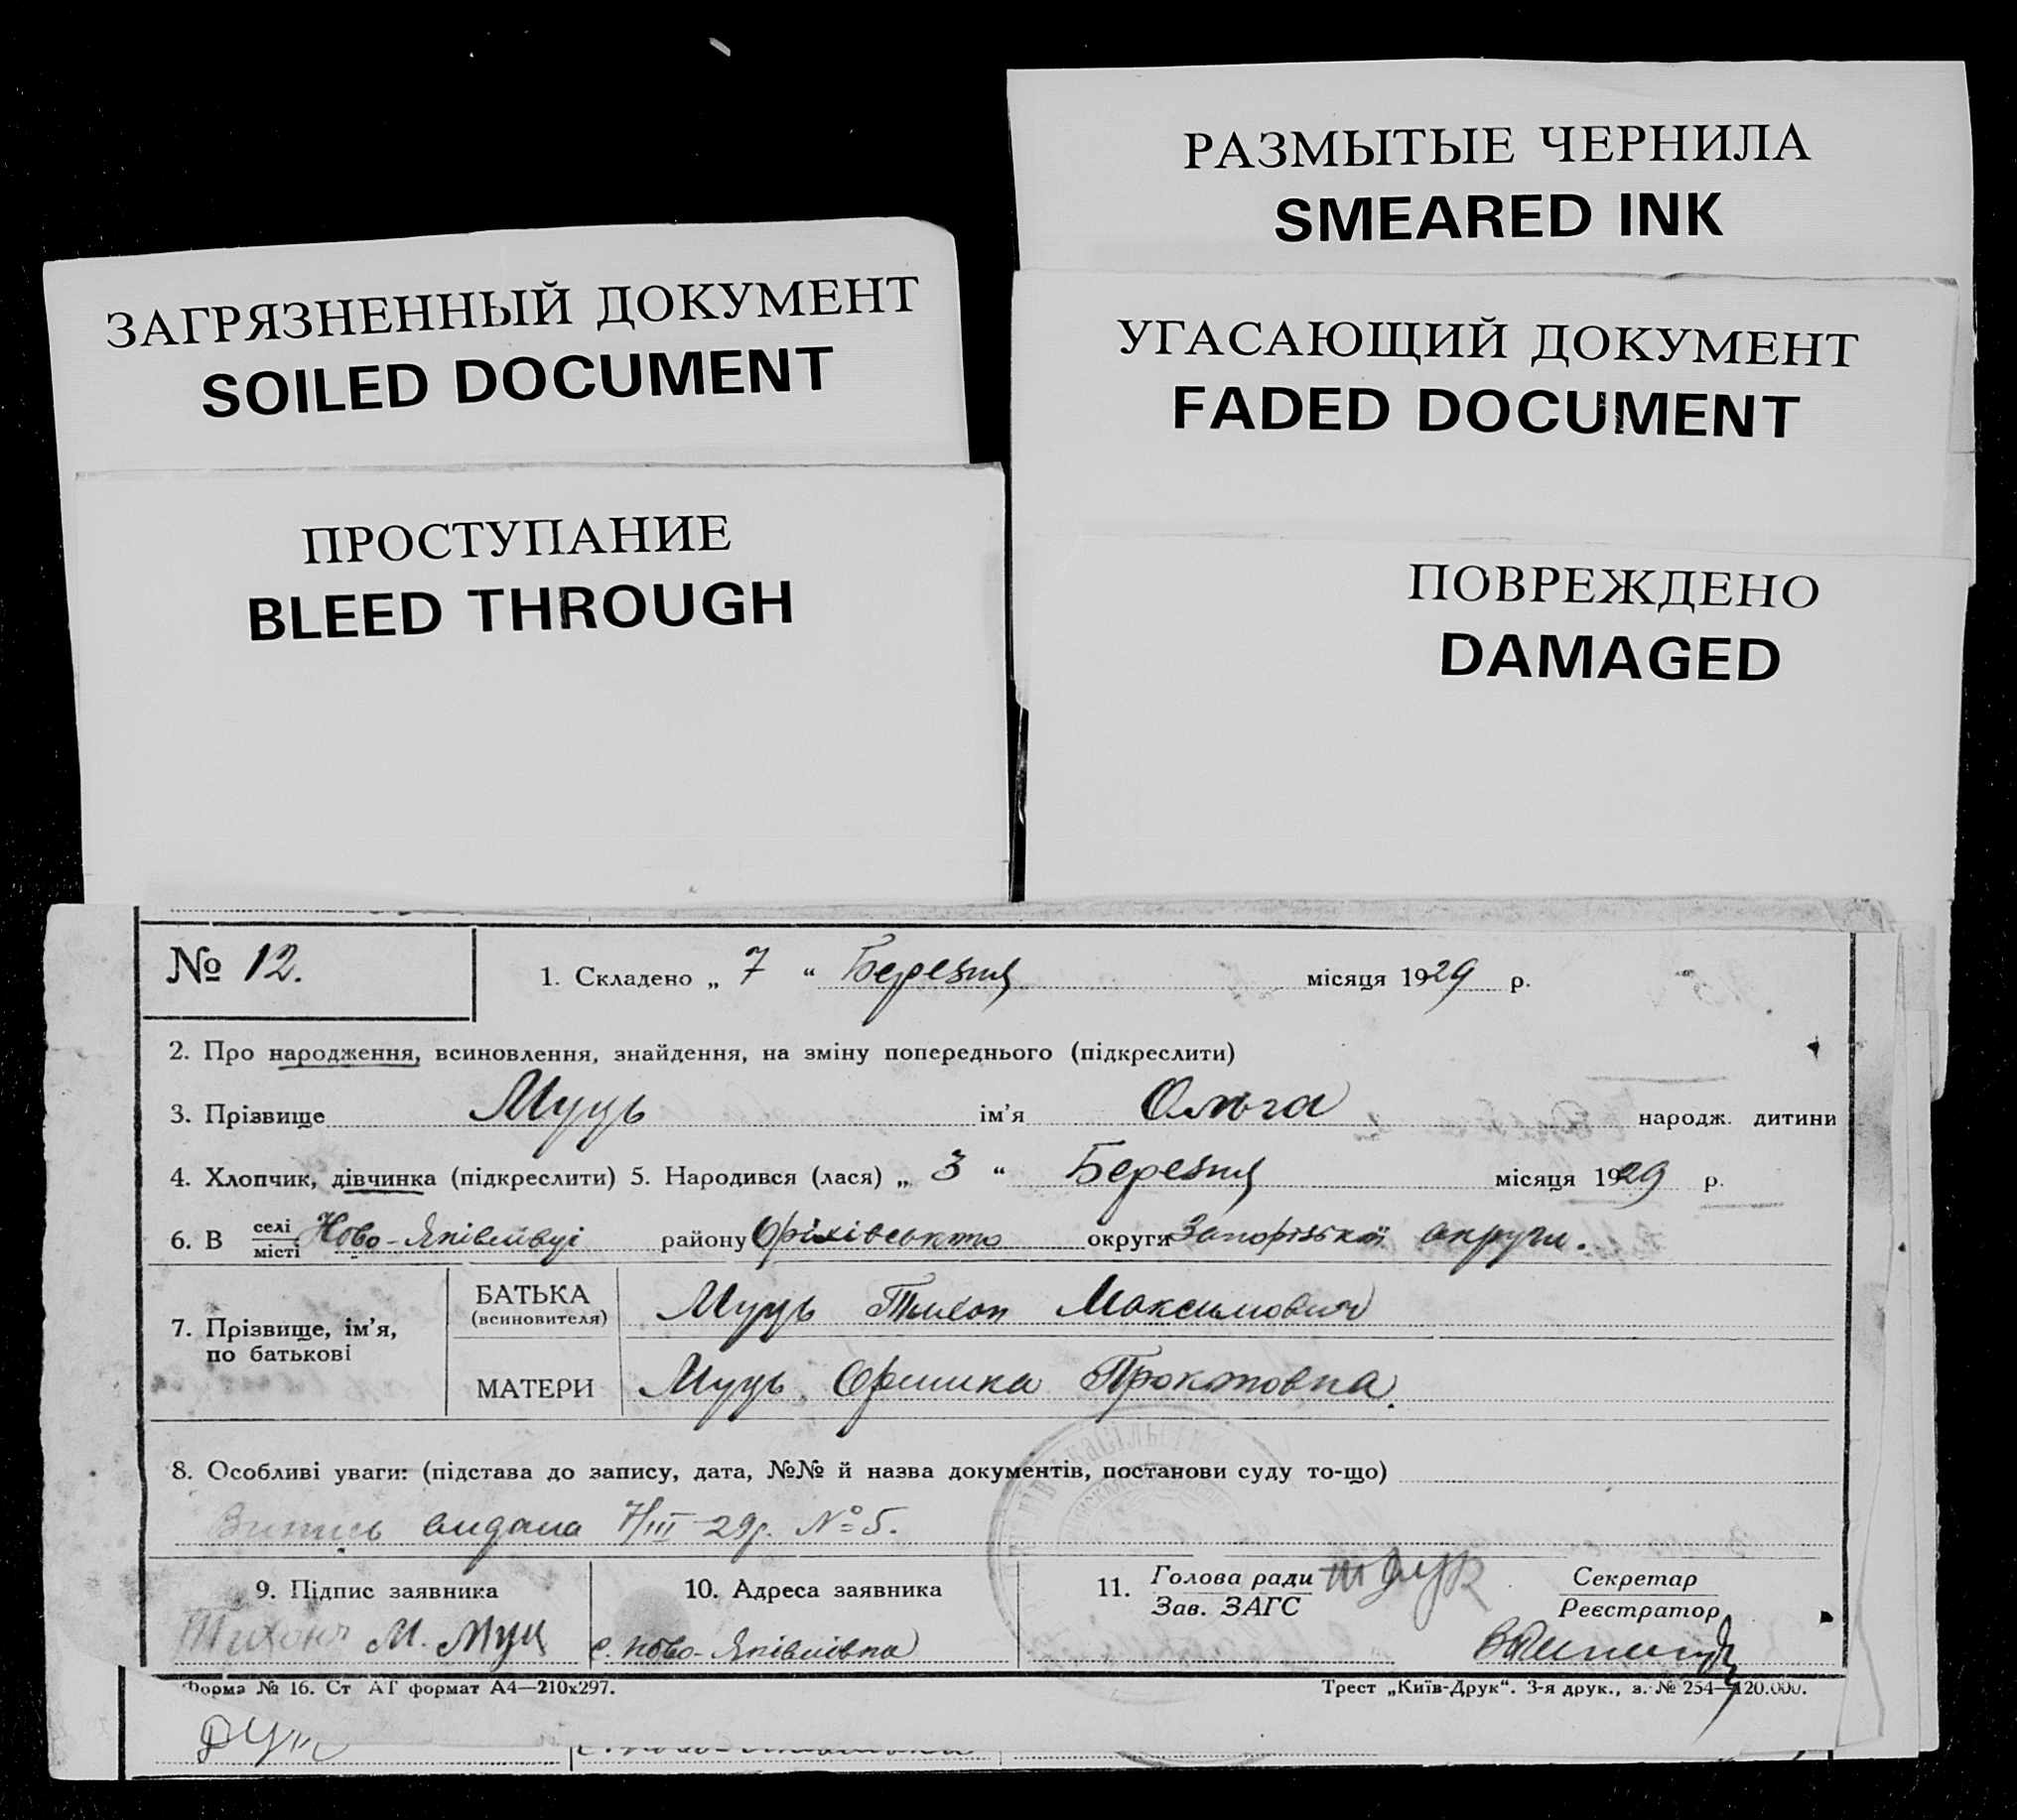 РАЗМЫТЫЕ ЧЕРНИЛА
SMEARED INK
ЗАГРЯЗНЕННЫЙ ДОКУМЕНТ
SOILED DOCUMENT
УГАСАЮЩИЙ ДОКУМЕНТ
FADED DOCUMENT
ПРОСТУПАНИЕ
BLEED THROUGH
ПОВРЕЖДЕНО
DAMAGED
№ 12.
1. Складено „ 7 “ Березня місяця 1929 р.
2. Про народження, всиновлення, знайдення, на зміну попереднього (підкреслити)
3. Прізвище Муць ім'я Ольга народж. дитини
4. Хлопчик, дівчинка (підкреслити) 5. Народився (лася) „ 3 “ Березня місяця 1929 р.
6. В селі/місті Ново-Яківлівці району Оріхівського округи Запорізької округи.
7. Прізвище, ім'я, по батькові
БАТЬКА (всиновителя) Муць Тихон Максимович
МАТЕРИ Муць Оришка
8. Особливі уваги: (підстава до запису, дата, №№ й назва документів, постанови суду то-що)
Витись видана 7/III-29р. № 5.
9. Підпис заявника
Тихон М. Муц
10. Адреса заявника
с. Ново-Яківлівка
11. Голова ради
Зав. ЗАГС
Секретар
Реєстратор
Форма № 16. Ст АТ формат А4—210х297.
Трест „Київ-Друк“. 3-я друк., з. № 254—120.000.